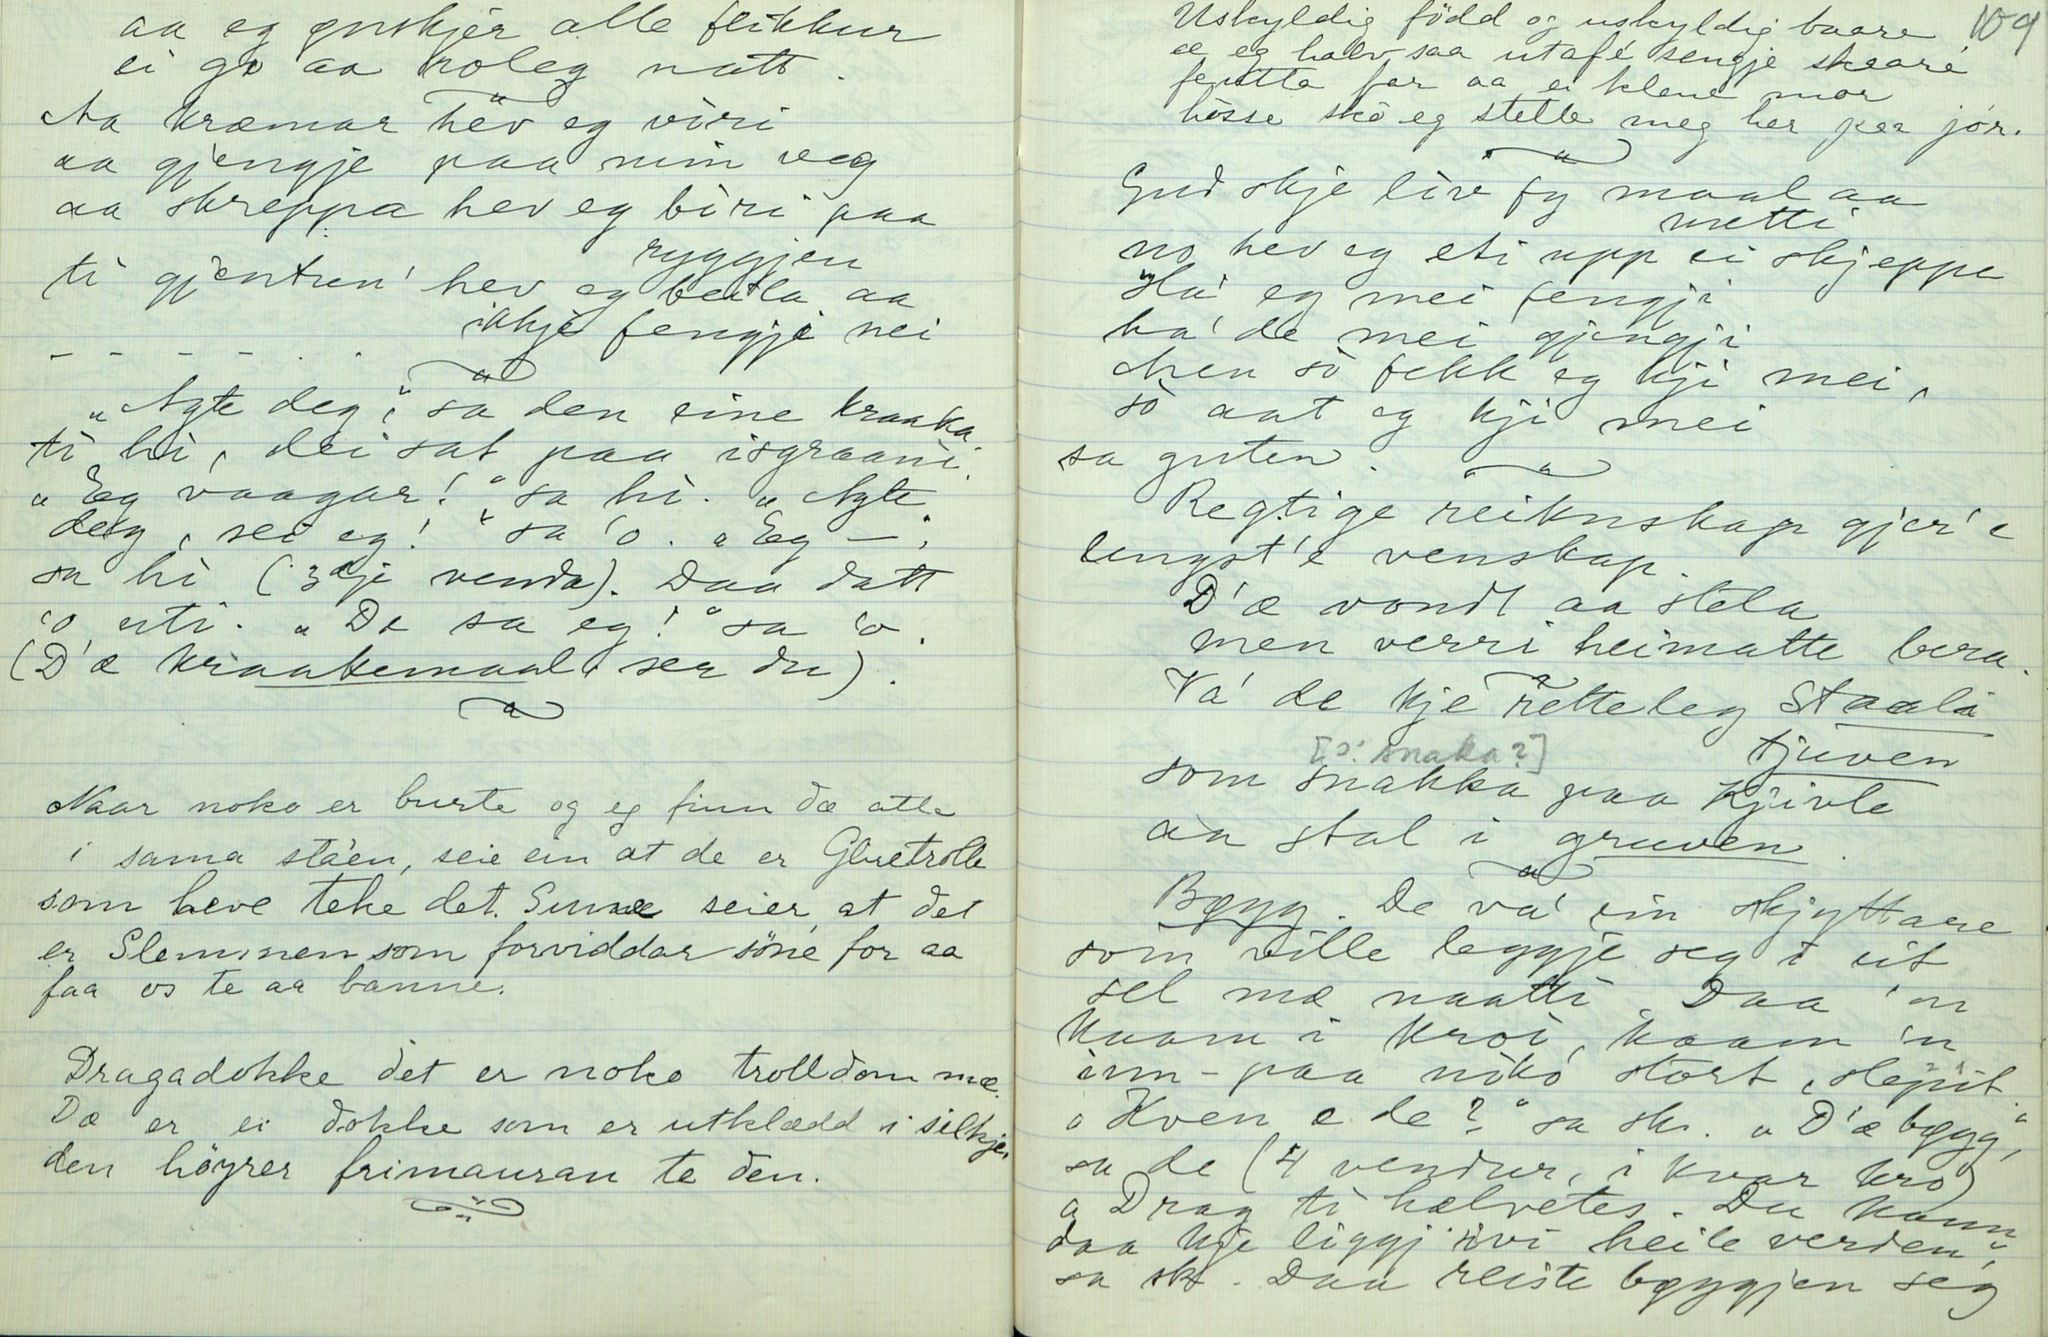 aa eg ynskjer alle flikkur
ei go aa roleg natt.
Aa kræmar hev eg vòri
aa gjengje paa min veg
aa skreppa hev eg bòri paa
ryggjen
ti gjentun' hev eg beila aa
ikkje fengje nei
- - - - . .
"Agte deg", sa den eine kraaka
ti hi, dei sat paa isgraani.
"Eg vaagar!" sa hi. "Agte
deg, sei eg!" sa 'o. "Eg —",
sa hi (3dje venda). Daa datt
'o uti. "De sa eg!" sa 'o.
(D'æ kraakemaal, ser du).
Naar noko er burte og eg finn dæ atte
i sama stáen, seie ein at de er Gluetrolle
som heve teke det. Sume seier, at det
er Slemmen som forviddar søne for aa
faa os te aa banne.
Dragadokke det er noko trolldom mæ.
Dæ er ei dokke som er utklædd i silkje,
den höyrer frimauran te den.
109
Uskyldig född og uskyldig baare
æ eg halv saa utafe sengje skaare
fentta far aa ei klene mor
hòsse skò eg stelle meg her paa jor.
Gud skje lòv fy maal aa
metti
no hev eg eti upp ei skjeppe
Há' eg mei fengji
ha' de mei gjengji
Men sò fekk eg kji mei,
sò aat eg kji mei
sa guten.
Regtige reiknskap gjer'e
lengst'e venskap.
D'æ vondt aa stela
men verri heimatte bera.
Va' de kje retteleg Staala
tjuven
[ɔ: snaka?]
som snakka paa Kjivle
aa stal i gruven.
Bøyg. De va' ein skjyttare
som ville leggje seg i eit
sel mæ naatti. Daa 'n
kaam i kròi, kaam 'n
inn-paa nòkò stort, slepit.
"Kven æ de?" sa sk. "D'æ bøyg,"
sa de (4 vendur, i kvar kro)
"Drag ti hælvetes. Du kann
daa kje liggj ivi heile verden",
sa sk. Daa reiste bøygjen seg